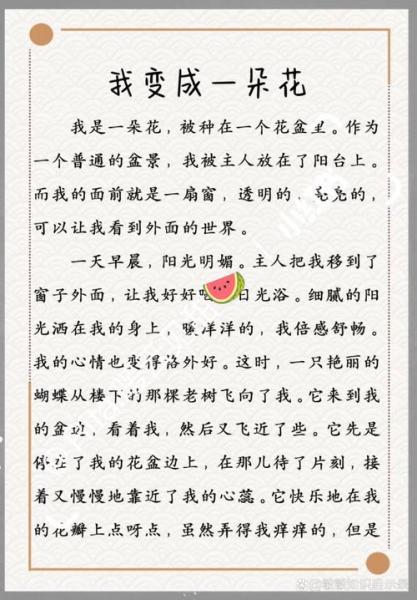 我变成一朵花
我是一朵花，被种在一个花盆里。作为
一个普通的盆景，我被主人放在了阳台上。
而我的面前就是一扇窗，透明的，亮亮的，
可以让我看到外面的世界。
一天早晨，阳光明媚。主人把我移到了
窗子外面，让我好好日光浴。细腻的阳
光洒在我的身上，暖洋洋的，我倍感舒畅。
我的心情也变得格外好。这时，一只艳丽的
蝴蝶从楼下的那棵老树飞向了我。它来到我
的盆边，看着我，然后又飞近了些。它先是
停在了我的花盆边上，在那儿待了片刻，接
着又慢慢地靠近了我的心蕊。它快乐地在我
的花瓣上点呀点，虽然弄得我痒痒的，但是